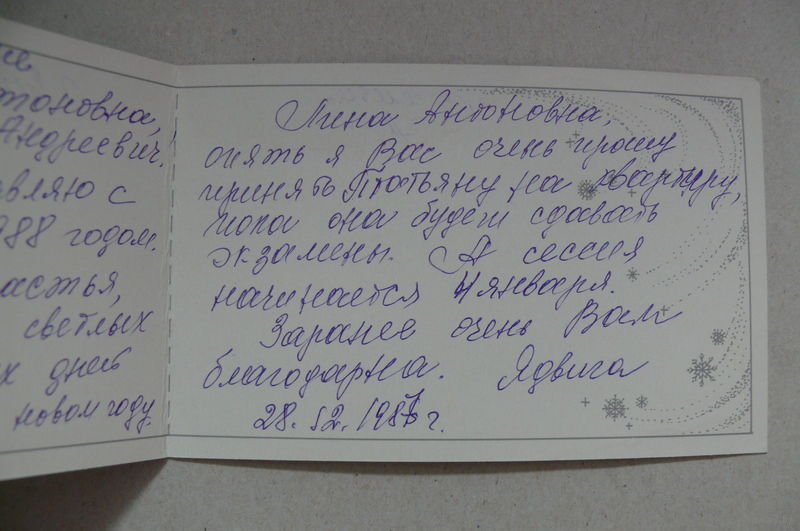 тоновна,
Андреевич!
вляю с
988 годом.
астья,
светлых
х дней
новом году.
Лина Антоновна,
опять я Вас очень прошу
принять Татьяну на квартиру,
пока она будет сдавать
экзамены. А сессия
начинается 4 января.
Заранее очень Вам
благодарна. Ядвига
28. 12. 1987 г.